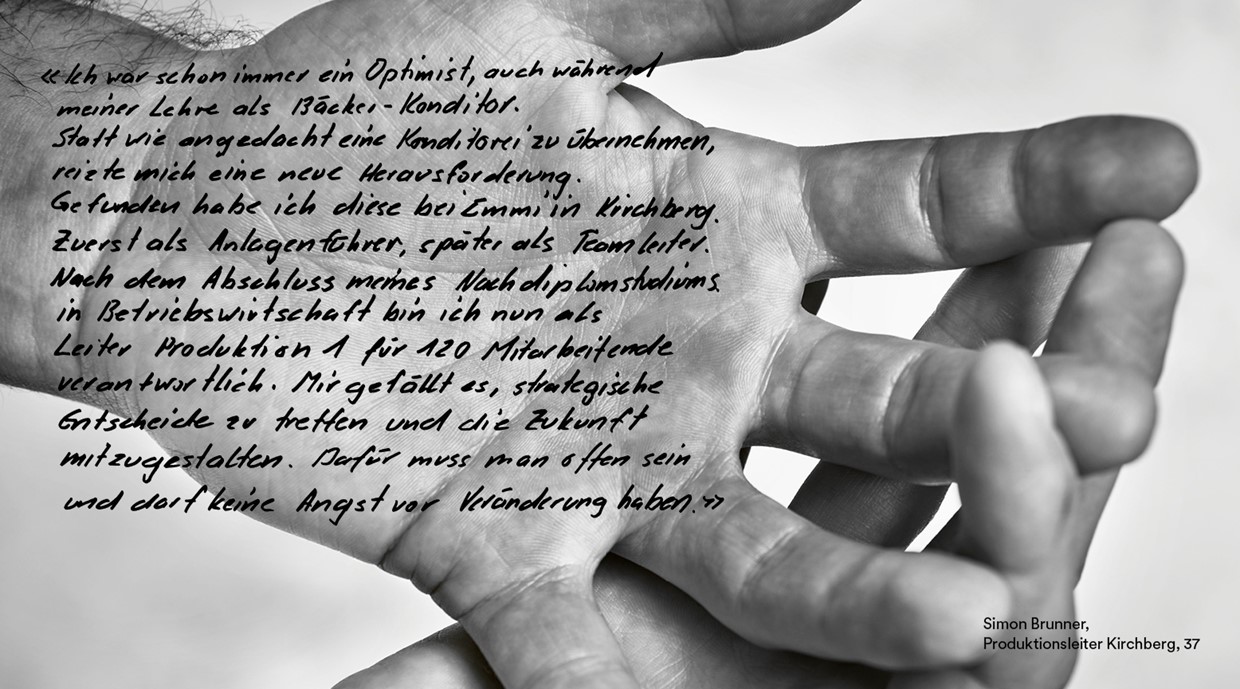 «Ich war schon immer ein Optimist, auch während
meiner Lehre als Bäcker-Konditor.
Statt wie angedacht eine Konditorei zu übernehmen,
reizte mich eine neue Herausforderung.
Gefunden habe ich diese bei Emmi in Kirchberg.
Zuerst als Anlagenführer, später als Teamleiter.
Nach dem Abschluss meines Nachdiplomstudiums
in Betriebswirtschaft bin ich nun als
Leiter Produktion 1 für 120 Mitarbeitende
verantwortlich. Mir gefällt es, strategische
Entscheide zu treffen und die Zukunft
mitzugestalten. Dafür muss man offen sein
und darf keine Angst vor Veränderung haben.»
Simon Brunner,
Produktionsleiter Kirchberg, 37